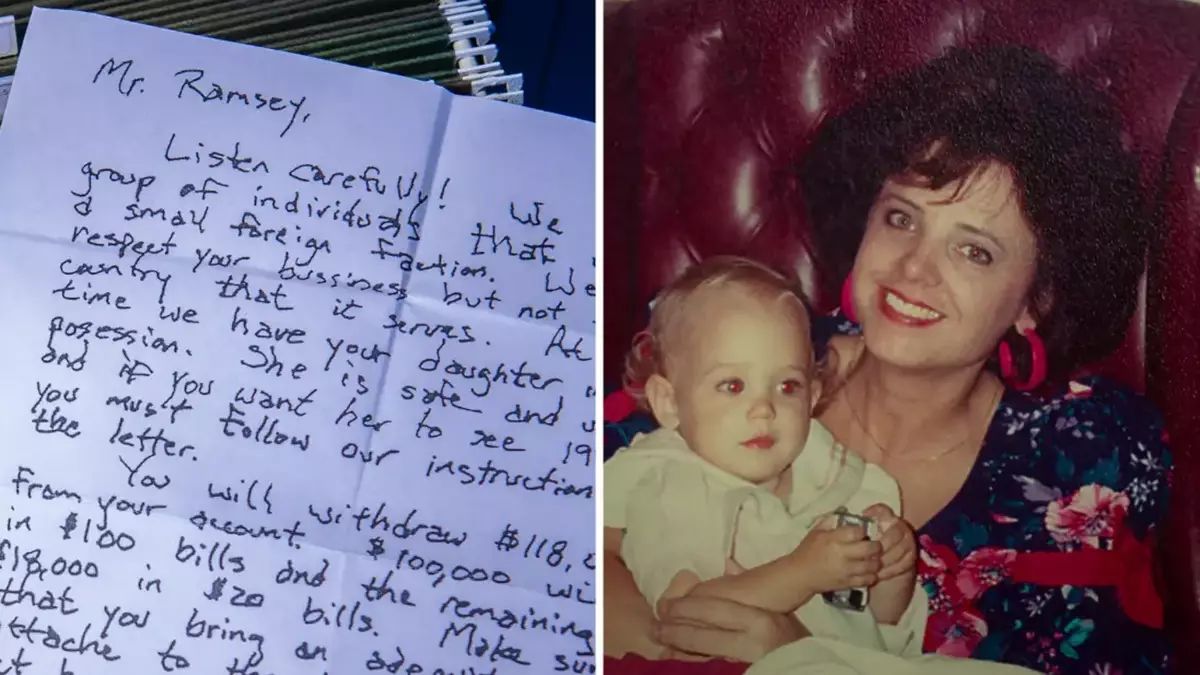 Mr. Ramsey,
Listen carefully! We
group of individuals that
a small foreign faction. We
respect your bussiness but not
country that it serves. At
time we have your daughter
posession. She is safe and
and if you want her to see 19
you must follow our instruction
the letter.
You will withdraw $118,
from your account. $100,000 wi
in $100 bills and the remaining
$18,000 in $20 bills. Make su
that you bring an
attache to the